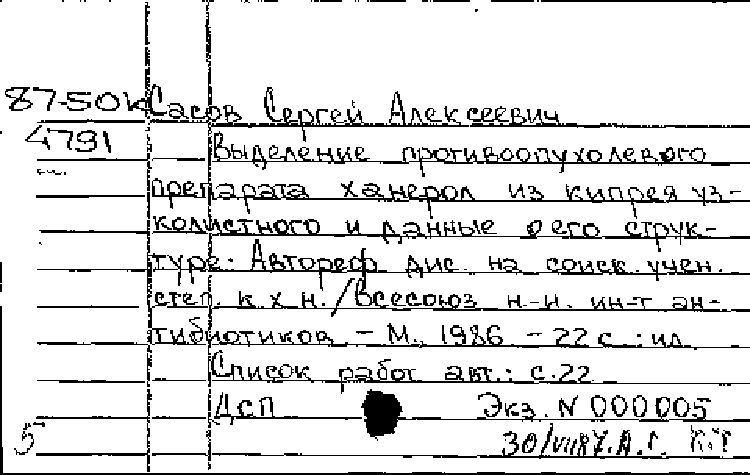 87-50к Сасов Сергей Алексеевич
4791 Выделение противоопухолевого
препарата ханерол из кипрея уз-
колистного и данные о его струк-
туре: Автореф. дис. на соиск. учен.
степ. к.х.н. / Всесоюз. н.-и. ин-т ан-
тибиотиков. – М., 1986. – 22 с.: ил.
Список работ авт.: с. 22
ДСП Экз. N 000005
5 30/VII87. А.Г.